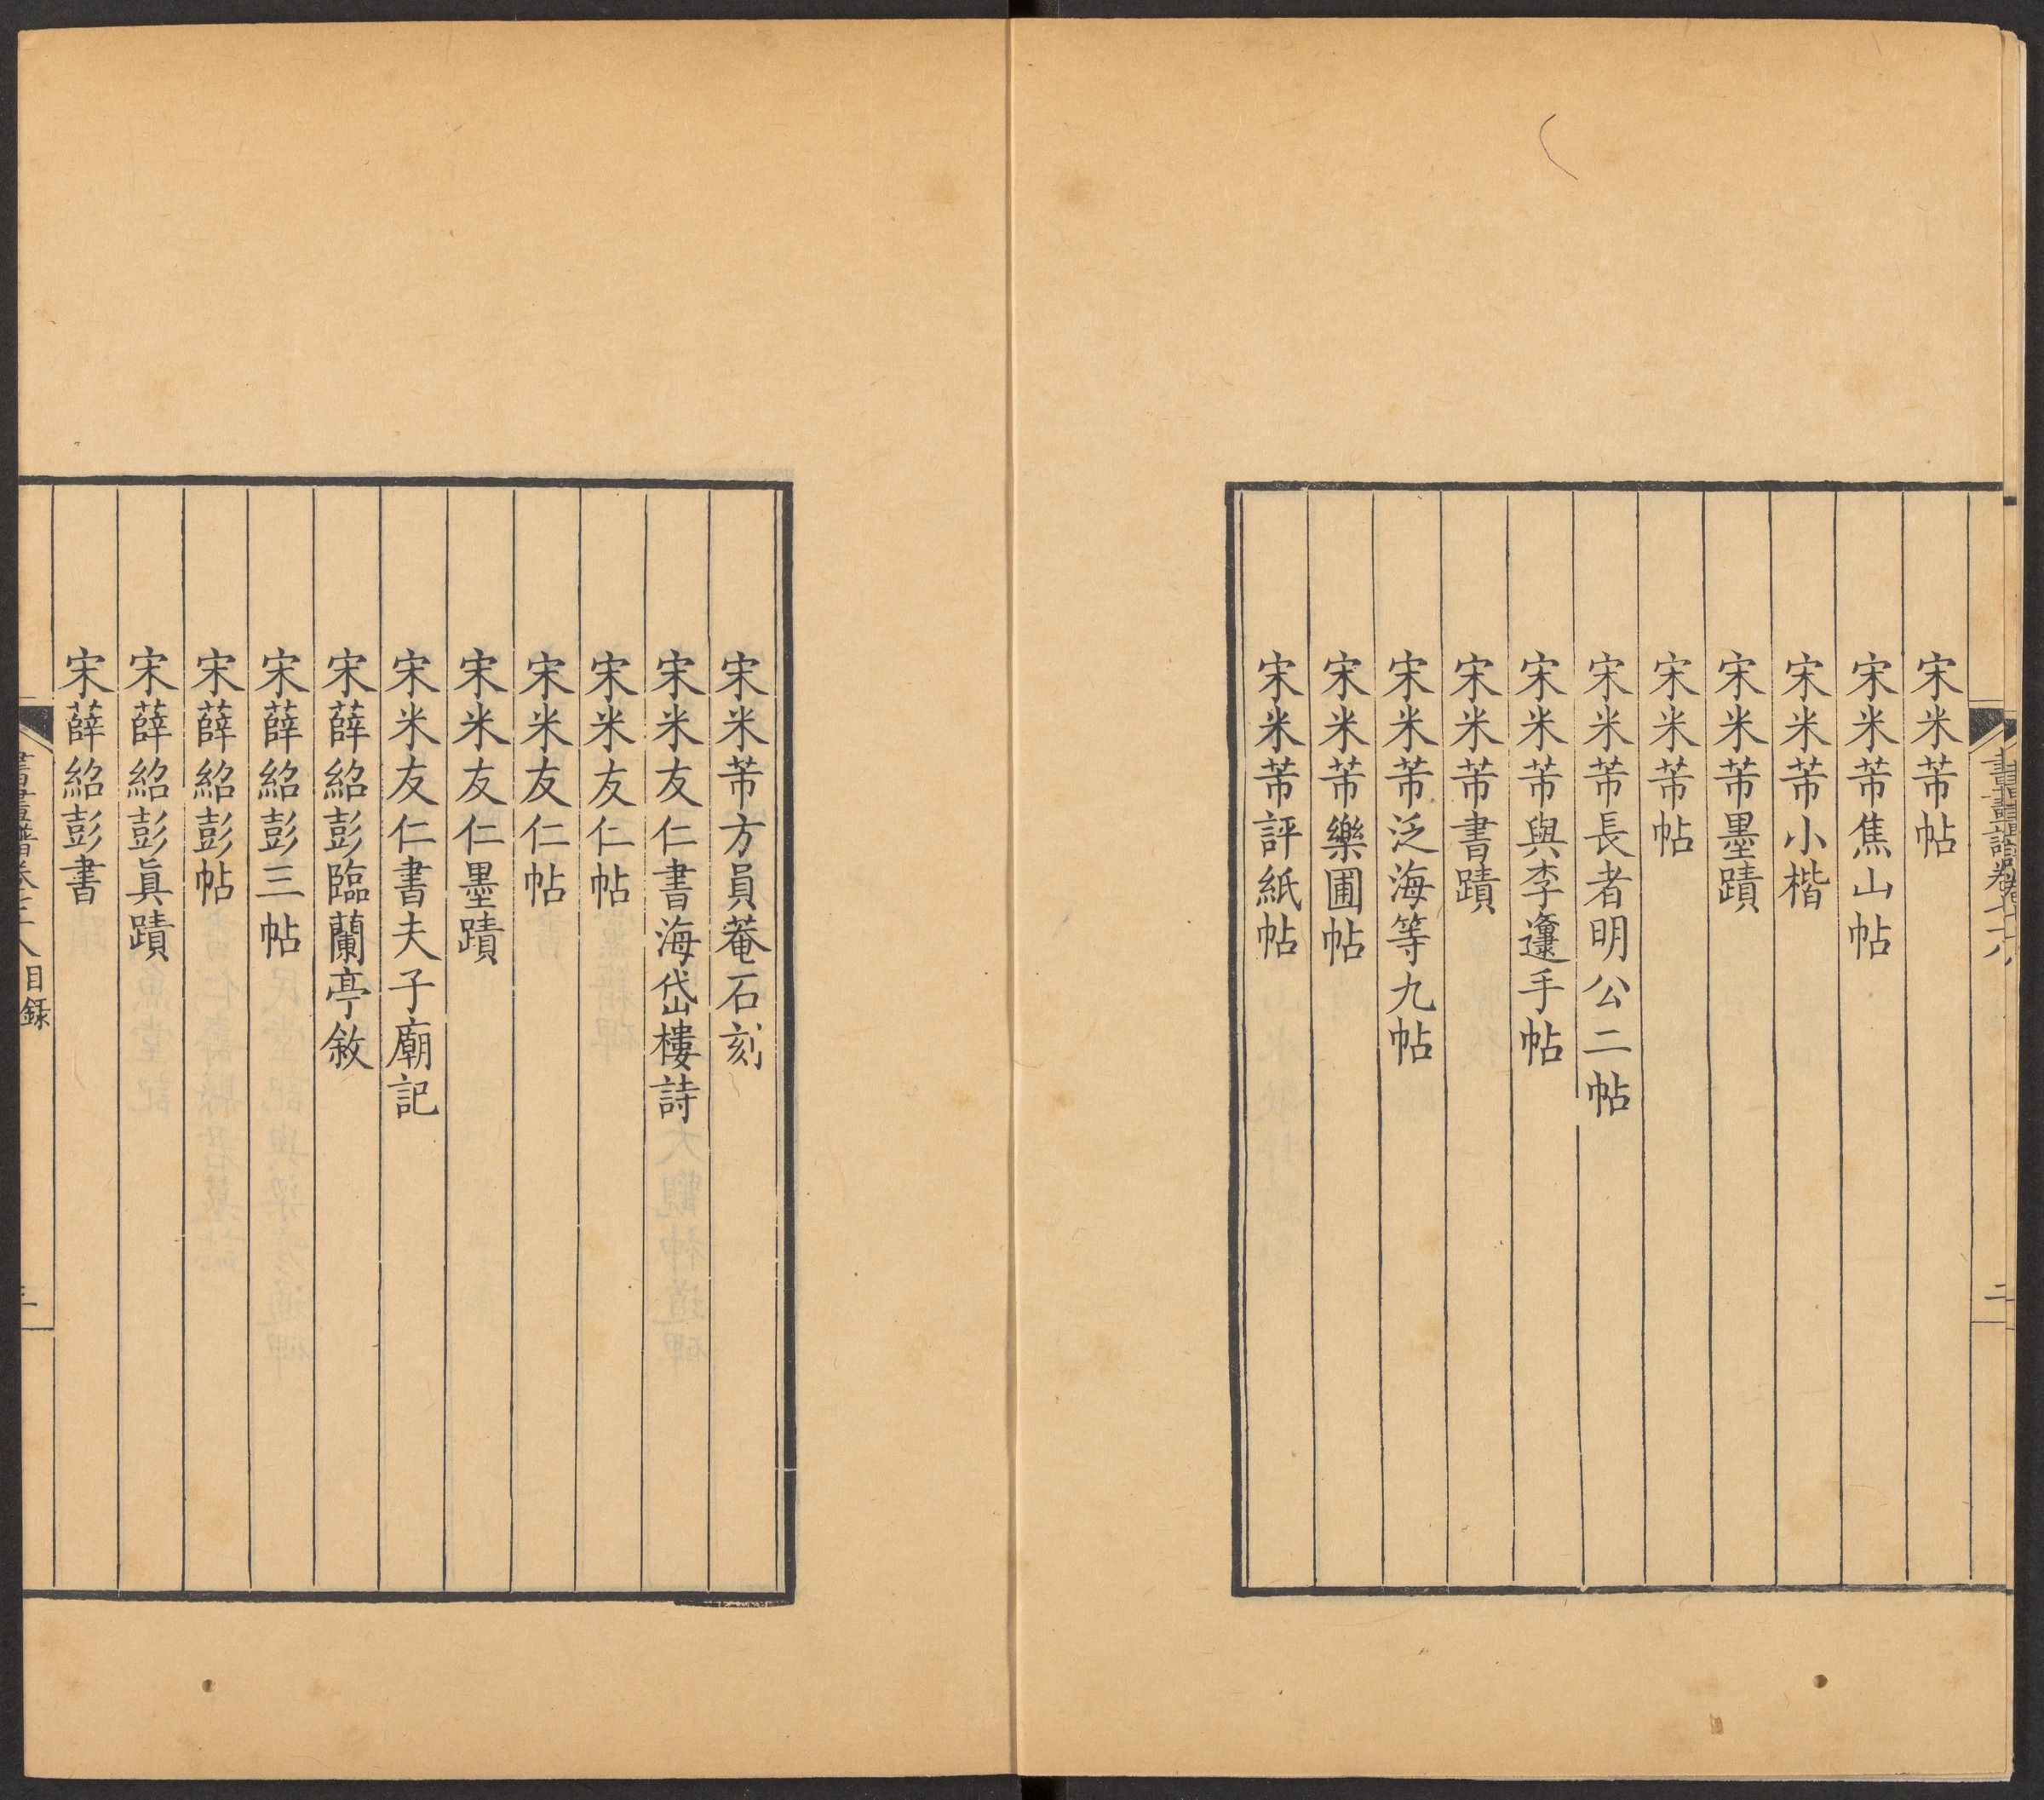 書畫譜卷七十八
二
宋米芾帖
宋米芾焦山帖
宋米芾小楷
宋米芾墨蹟
宋米芾帖
宋米芾長者明公二帖
宋米芾與李邍手帖
宋米芾書蹟
宋米芾泛海等九帖
宋米芾樂圃帖
宋米芾評紙帖
宋米芾方員菴石刻
宋米友仁書海岱樓詩
宋米友仁帖
宋米友仁帖
宋米友仁墨蹟
宋米友仁書夫子廟記
宋薛紹彭臨蘭亭敘
宋薛紹彭三帖
宋薛紹彭帖
宋薛紹彭眞蹟
宋薛紹彭書
書畫譜卷七十八目錄
三